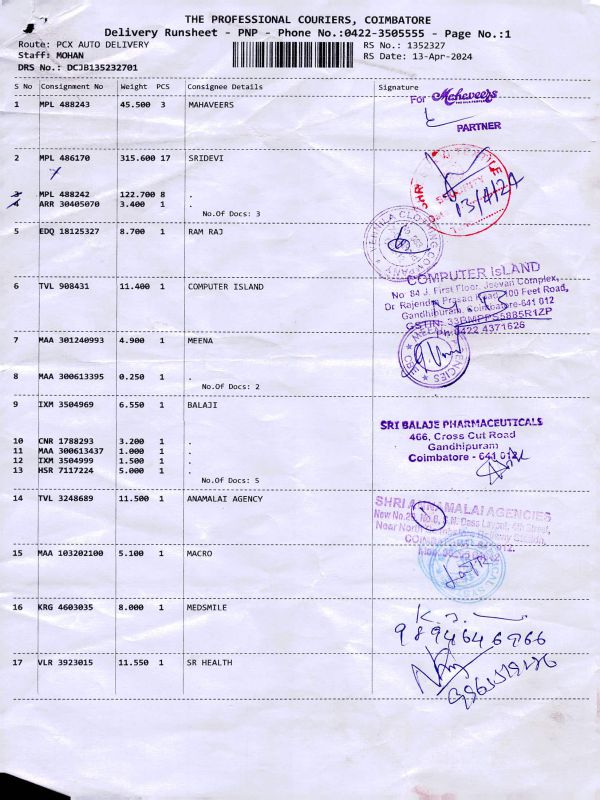 THE PROFESSIONAL COURIERS, COIMBATORE
Delivery Runsheet - PNP - Phone No.:0422-3505555 - Page No.:1
Route: PCX AUTO DELIVERY RS No.: 1352327
Staff: MOHAN RS Date: 13-Apr-2024
DRS No.: DCJB135232701
S No Consignment No Weight PCS Consignee Details Signature
1 MPL 488243 45.500 3 MAHAVEERS
For Mahaveers
PARTNER
2 MPL 486170 315.600 17 SRIDEVI
13/4/24
3 MPL 488242 122.700 8 .
4 ARR 30405070 3.400 1 .
No.Of Docs: 3
5 EDQ 18125327 8.700 1 RAM RAJ
6 TVL 908431 11.400 1 COMPUTER ISLAND
COMPUTER ISLAND
No 84 J First Floor, Jeevan Complex,
Dr Rajendra Prasad Road, 100 Feet Road,
Gandhipuram, Coimbatore-641 012
GSTIN: 33BMPPS5885R1ZP
Ph:0422 4371626
7 MAA 301240993 4.900 1 MEENA
8 MAA 300613395 0.250 1 .
No.Of Docs: 2
9 IXM 3504969 6.550 1 BALAJI
SRI BALAJE PHARMACEUTICALS
466, Cross Cut Road
Gandhipuram
Coimbatore - 641 012
10 CNR 1788293 3.200 1 .
11 MAA 300613437 1.000 1 .
12 IXM 3504999 1.500 1 .
13 HSR 7117224 5.000 1 .
No.Of Docs: 5
14 TVL 3248689 11.500 1 ANAMALAI AGENCY
SHRI ANNAMALAI AGENCIES
15 MAA 103202100 5.100 1 MACRO
16 KRG 4603035 8.000 1 MEDSMILE
9894646966
17 VLR 3923015 11.550 1 SR HEALTH